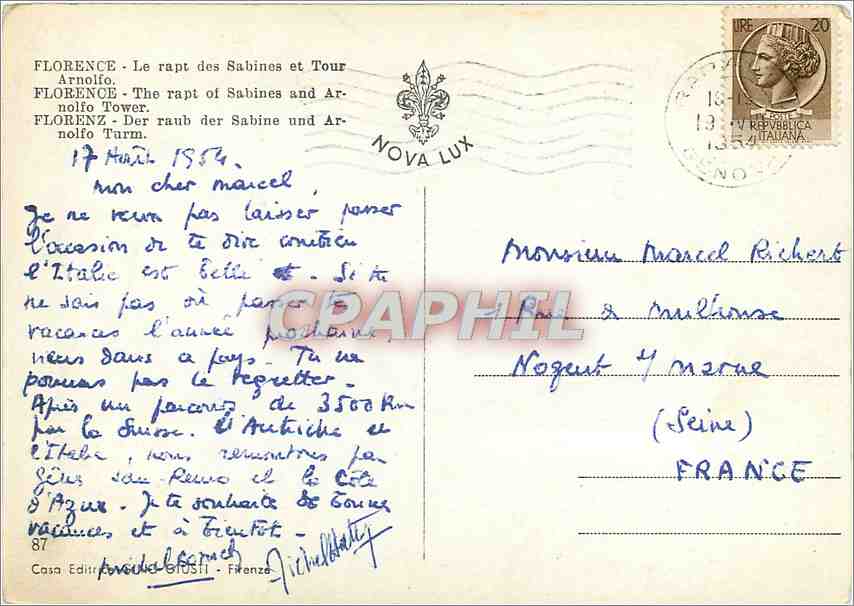 FLORENCE - Le rapt des Sabines et Tour
Arnolfo.
FLORENCE - The rapt of Sabines and Ar-
nolfo Tower.
FLORENZ - Der raub der Sabine und Ar-
nolfo Turm.
NOVA LUX
LIRE 20
POSTE
REPVBBLICA
ITALIANA
1954
17 Août 1954.
mon cher marcel,
Je ne veux pas laisser passer
l'occasion de te dire combien
l'Italie est belle. Si tu
ne sais pas où passer tes
vacances l'année prochaine,
viens dans ce pays. Tu ne
pourras pas le regretter.
Après un parcours de 3500 km
par la Suisse. l'Autriche et
l'Italie, nous remontons par
Gênes San-Remo et la Côte
d'Azur. Je te souhaite de bonnes
vacances et à bientôt.
Monsieur Marcel Richert
Rue de mulhouse
Nogent s/ marne
(Seine)
FRANCE
CPAPHIL
87
Casa Editrice GINO GIUSTI - Firenze